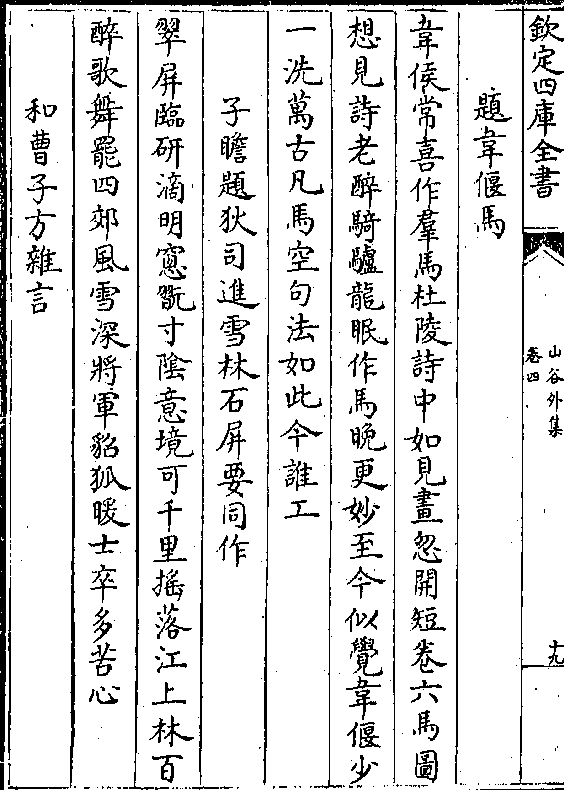 欽定四庫全書
山谷外集
卷四
十九
題韋偃馬
韋侯常喜作羣馬杜陵詩中如見畫忽開短卷六馬圖
想見詩老醉騎驢龍眠作馬晚更妙至今似覺韋偃少
一洗萬古凡馬空句法如此今誰工
子瞻題狄司進雪林石屏要同作
翠屏臨研滴明窻翫寸陰意境可千里摇落江上林百
醉歌舞罷四郊風雪深將軍貂狐暖士卒多苦心
和曹子方雜言